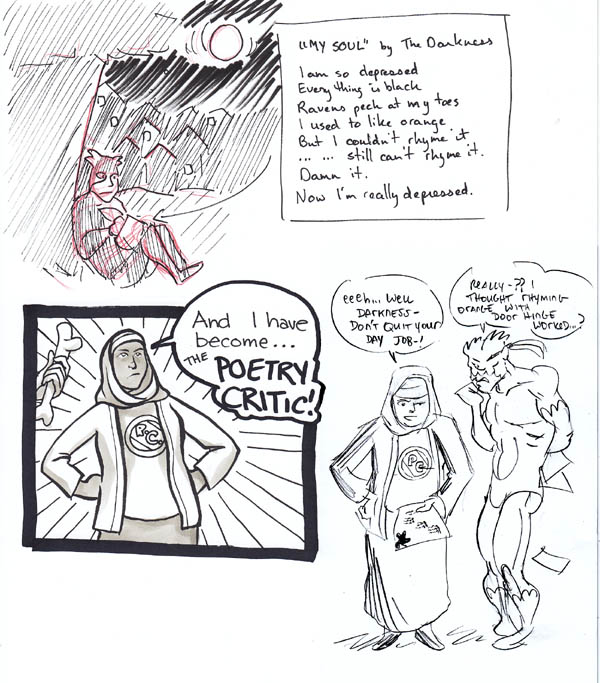 "MY SOUL" by The Darkness
I am so depressed
Everything is black
Ravens peck at my toes
I used to like orange
But I couldn't rhyme it
... ... still can't rhyme it.
Damn it.
Now I'm really depressed.
And I have
become...
THE POETRY
CRITIC!
P.C.
eeeh... Well
DARKNESS-
DON'T QUIT YOUR
DAY JOB-!
PC
REALLY-?? I
THOUGHT RHYMING
ORANGE WITH
DOOR HINGE
WORKED...?